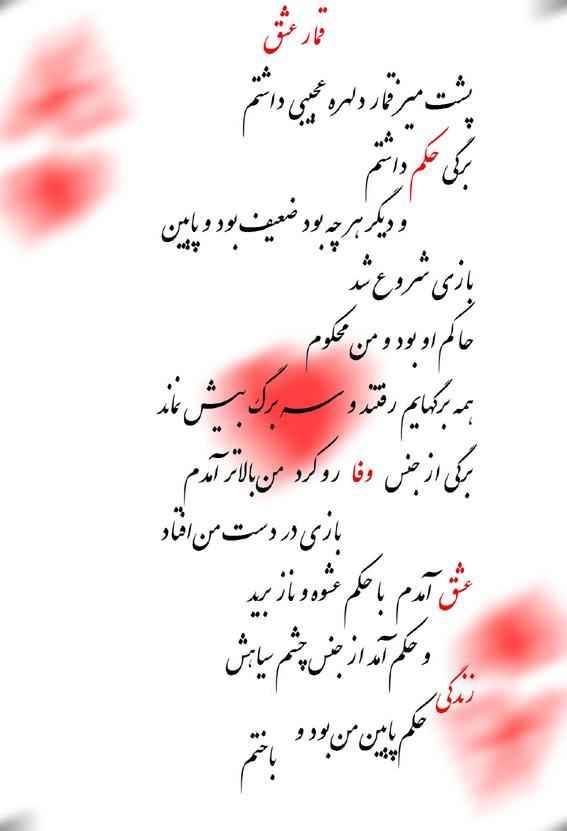 قمار عشق
پشت میز قمار دلهره عجیبی داشتم
برگی حکم داشتم
و دیگر هر چه بود ضعیف بود و پایین
بازی شروع شد
حاکم او بود و من محکوم
همه برگهایم رفتند و سه برگ بیش نماند
برگی از جنس وفا رو کرد من بالاتر آمدم
بازی در دست من افتاد
عشق آمدم با حکم عشوه و ناز برید
و حکم آمد از جنس چشم سیاهش
زندگی
حکم پایین من بود و
باختم